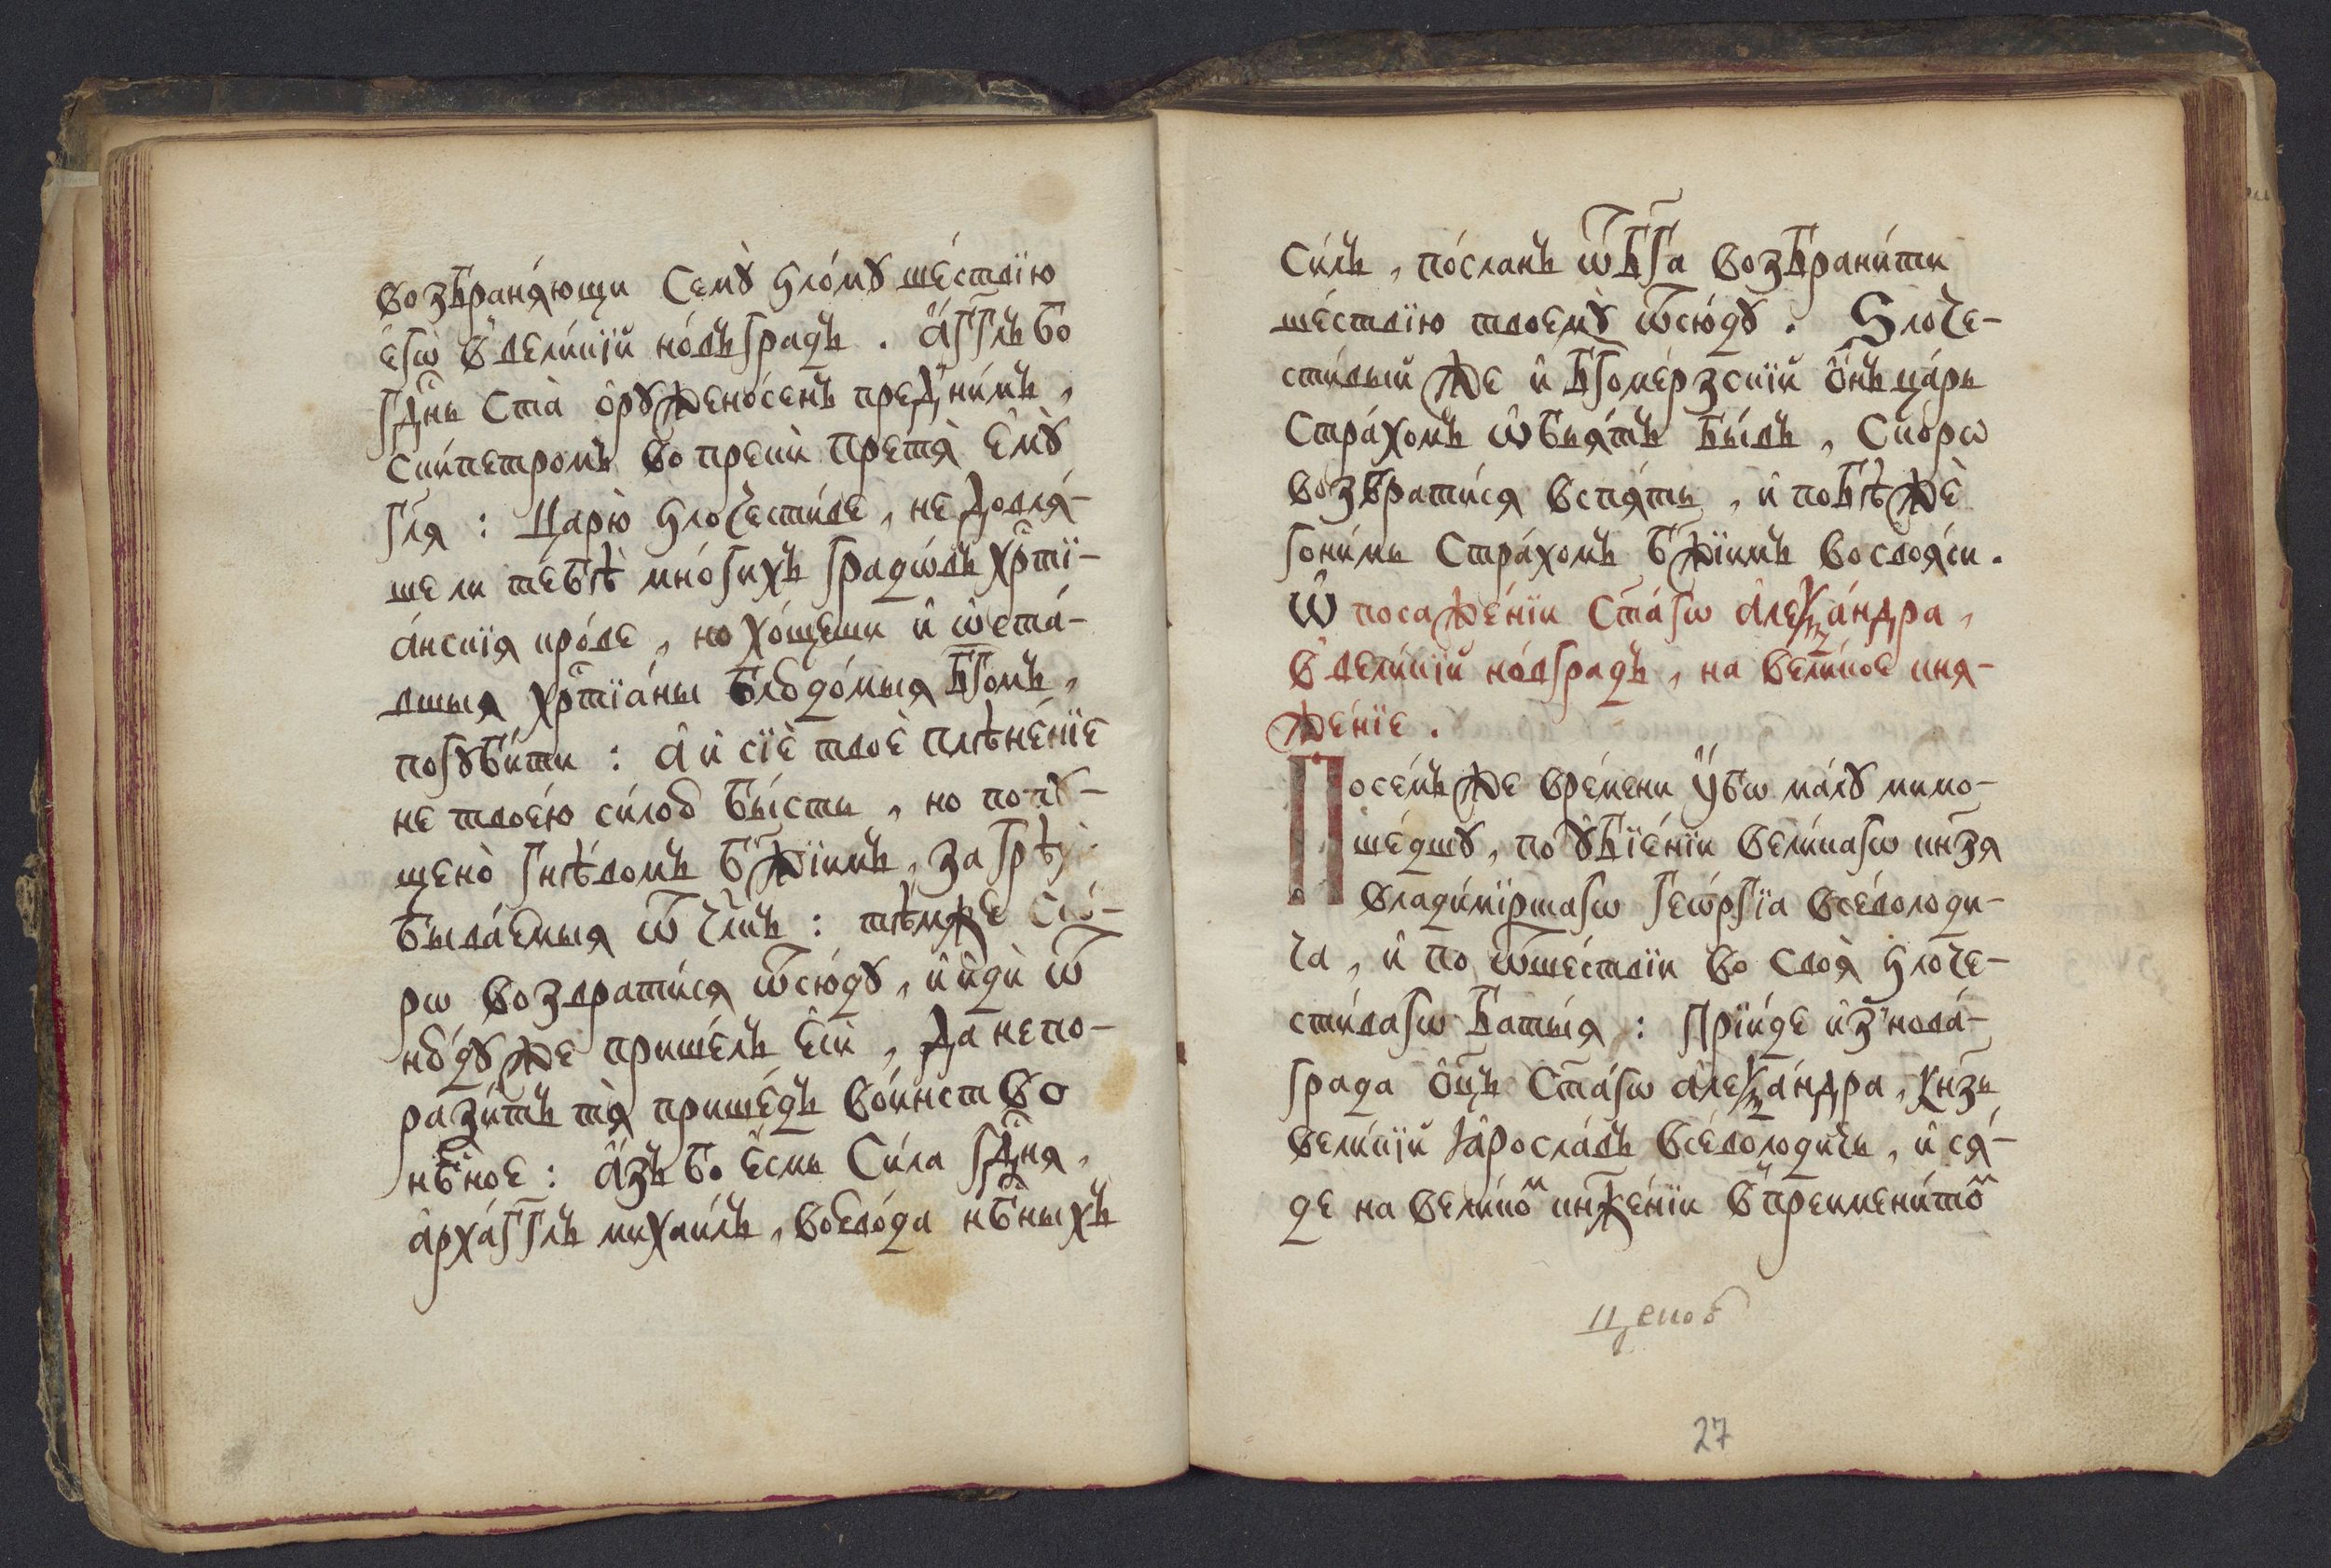 возбраня́ющи семꙋ̀ ѕло́мꙋ ше́ствїю
є҆гѡ̀ в̾вели́кїй но́въгра́дъ . а҆́гг҃лъ бо
гд҇нь ста̀ ѻ҆рꙋженосенъ пред̾ни́мъ ,
ски́петромъ вопрекѝ претѧ̀ є҆мꙋ̀
гл҃ѧ : царю̀ ѕлочести́ве , не довлѧ́-
ше ли тебѣ̀ мно́гихъ градѡ́въ хрⷭ҇тї-
а́нскїѧ кро́ве , но хо́щеши и҆ ѡ҆ста́-
вшыѧ хрⷭ҇тїа́ны блюдо́мыѧ бг҃омъ ,
погꙋби́ти : а҆ и҆ сїѐ твоѐ плѣне́нїе
не твое́ю си́лою бы́сть , но попꙋ-
щено̀ гнѣ́вомъ бж҃їимъ , за грѣ
быва́емыѧ ѿ чл҃къ : тѣ́мже ско́-
рѡ возврати́сѧ ѿсю́дꙋ , и҆ и҆дѝ ѿ
ню́дꙋже прише́лъ є҆сѝ , да не по-
рази́тъ тѧ̀ прише́дъ во́инство
нб҇ное : а҆́зъ бо є҆́смь си́ла гд҇нѧ ,
а҆рха́гг҃лъ михаи́лъ , воево́да нб҇ныхъ
си́лъ , по́сланъ ѿ бг҃а возбрани́ти
ше́ствїю твоемꙋ̀ ѿсю́дꙋ . Ѕлоче-
сти́вый же и҆ бг҃оме́рзскїй ѻ҆́нъ ца́рь
стра́хомъ ѡ҆б̾ѧ́тъ бы́въ , ско́рѡ
возврати́сѧ вспѧ́ть , и҆ побѣжѐ
гони́мь стра́хомъ бж҃їимъ восвоѧ́си .
Ѡ҆ посаже́нїи ст҃а́гѡ а҆леѯа́ндра ,
в̾вели́кїй но́вгра́дъ , на вели́кое кнѧ-
же́нїе .
Посе́мъ же вре́мени ᲂу҆́бѡ ма́лꙋ мимо-
ше́дшꙋ , по ᲂу҆бїе́нїи вели́кагѡ кн҃зѧ
влади́мїрскагѡ геѡ́ргїа все́володи-
ча , и҆ по ѿше́ствїи во своѧ̀ ѕлоче-
сти́вагѡ баты́ѧ : прїи́де и҆з̾нова́-
града ѻ҆ц҃ъ ст҃а́гѡ а҆леѯа́ндра , кн҃зь
вели́кїй ꙗ҆росла́въ все́володичь , и҆ сѧ́-
де на вели́комъ кнже́нїи в̾преимени́томъ
27